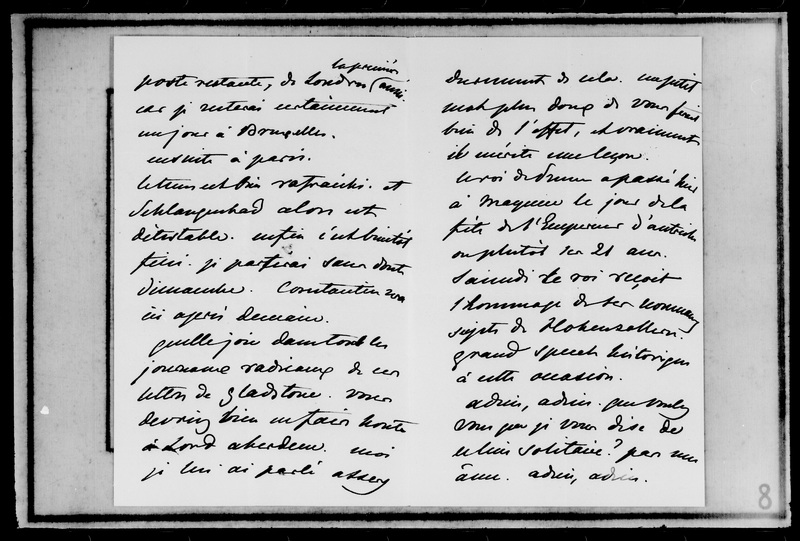 la première
poste restante, de Londres (aussi.
car je resterai certainement
un jour à Bruxelles.
ensuite à paris.
le tems est bien rafraichi. et
Schlangenbad alors est
détestable. enfin c'est bientôt
fini. je partirai sans doute
dimanche. Constantin sera
ici après demain.
quelle joie dans tous les
journaux radicaux de ces
lettres de gladstone. vous
devriez bien en faire honte
à Lord aberdeen. moi
je lui ai parlé assez
durement de cela. un petit
mot plus doux de vous ferait
bien de l'effet, et vraiment
il mérite une leçon.
le roi de Prusse a passé hier
à Mayence le jour de la
fête de l'Empereur d'autriche
ou plutôt ses 21 ans.
Samedi le roi reçoit
l'hommage de ses nouveaux
sujets de Hohenzollern.
grand speech historique
à cette occasion.
adieu, adieu. que voulez
vous que je vous dise de
ce lieu solitaire? pas une
âme. adieu, adieu.
8